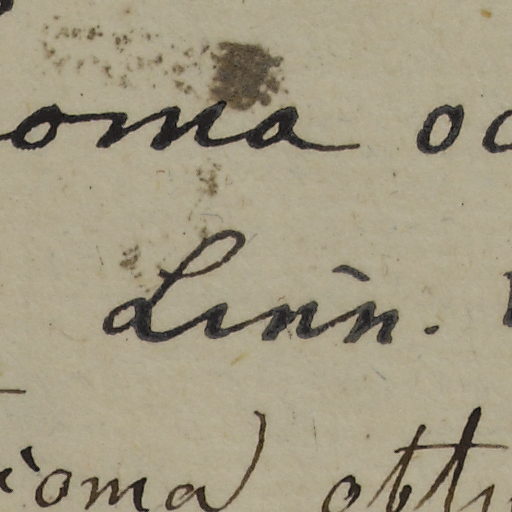 oma oc
Linn.
ioma obtu